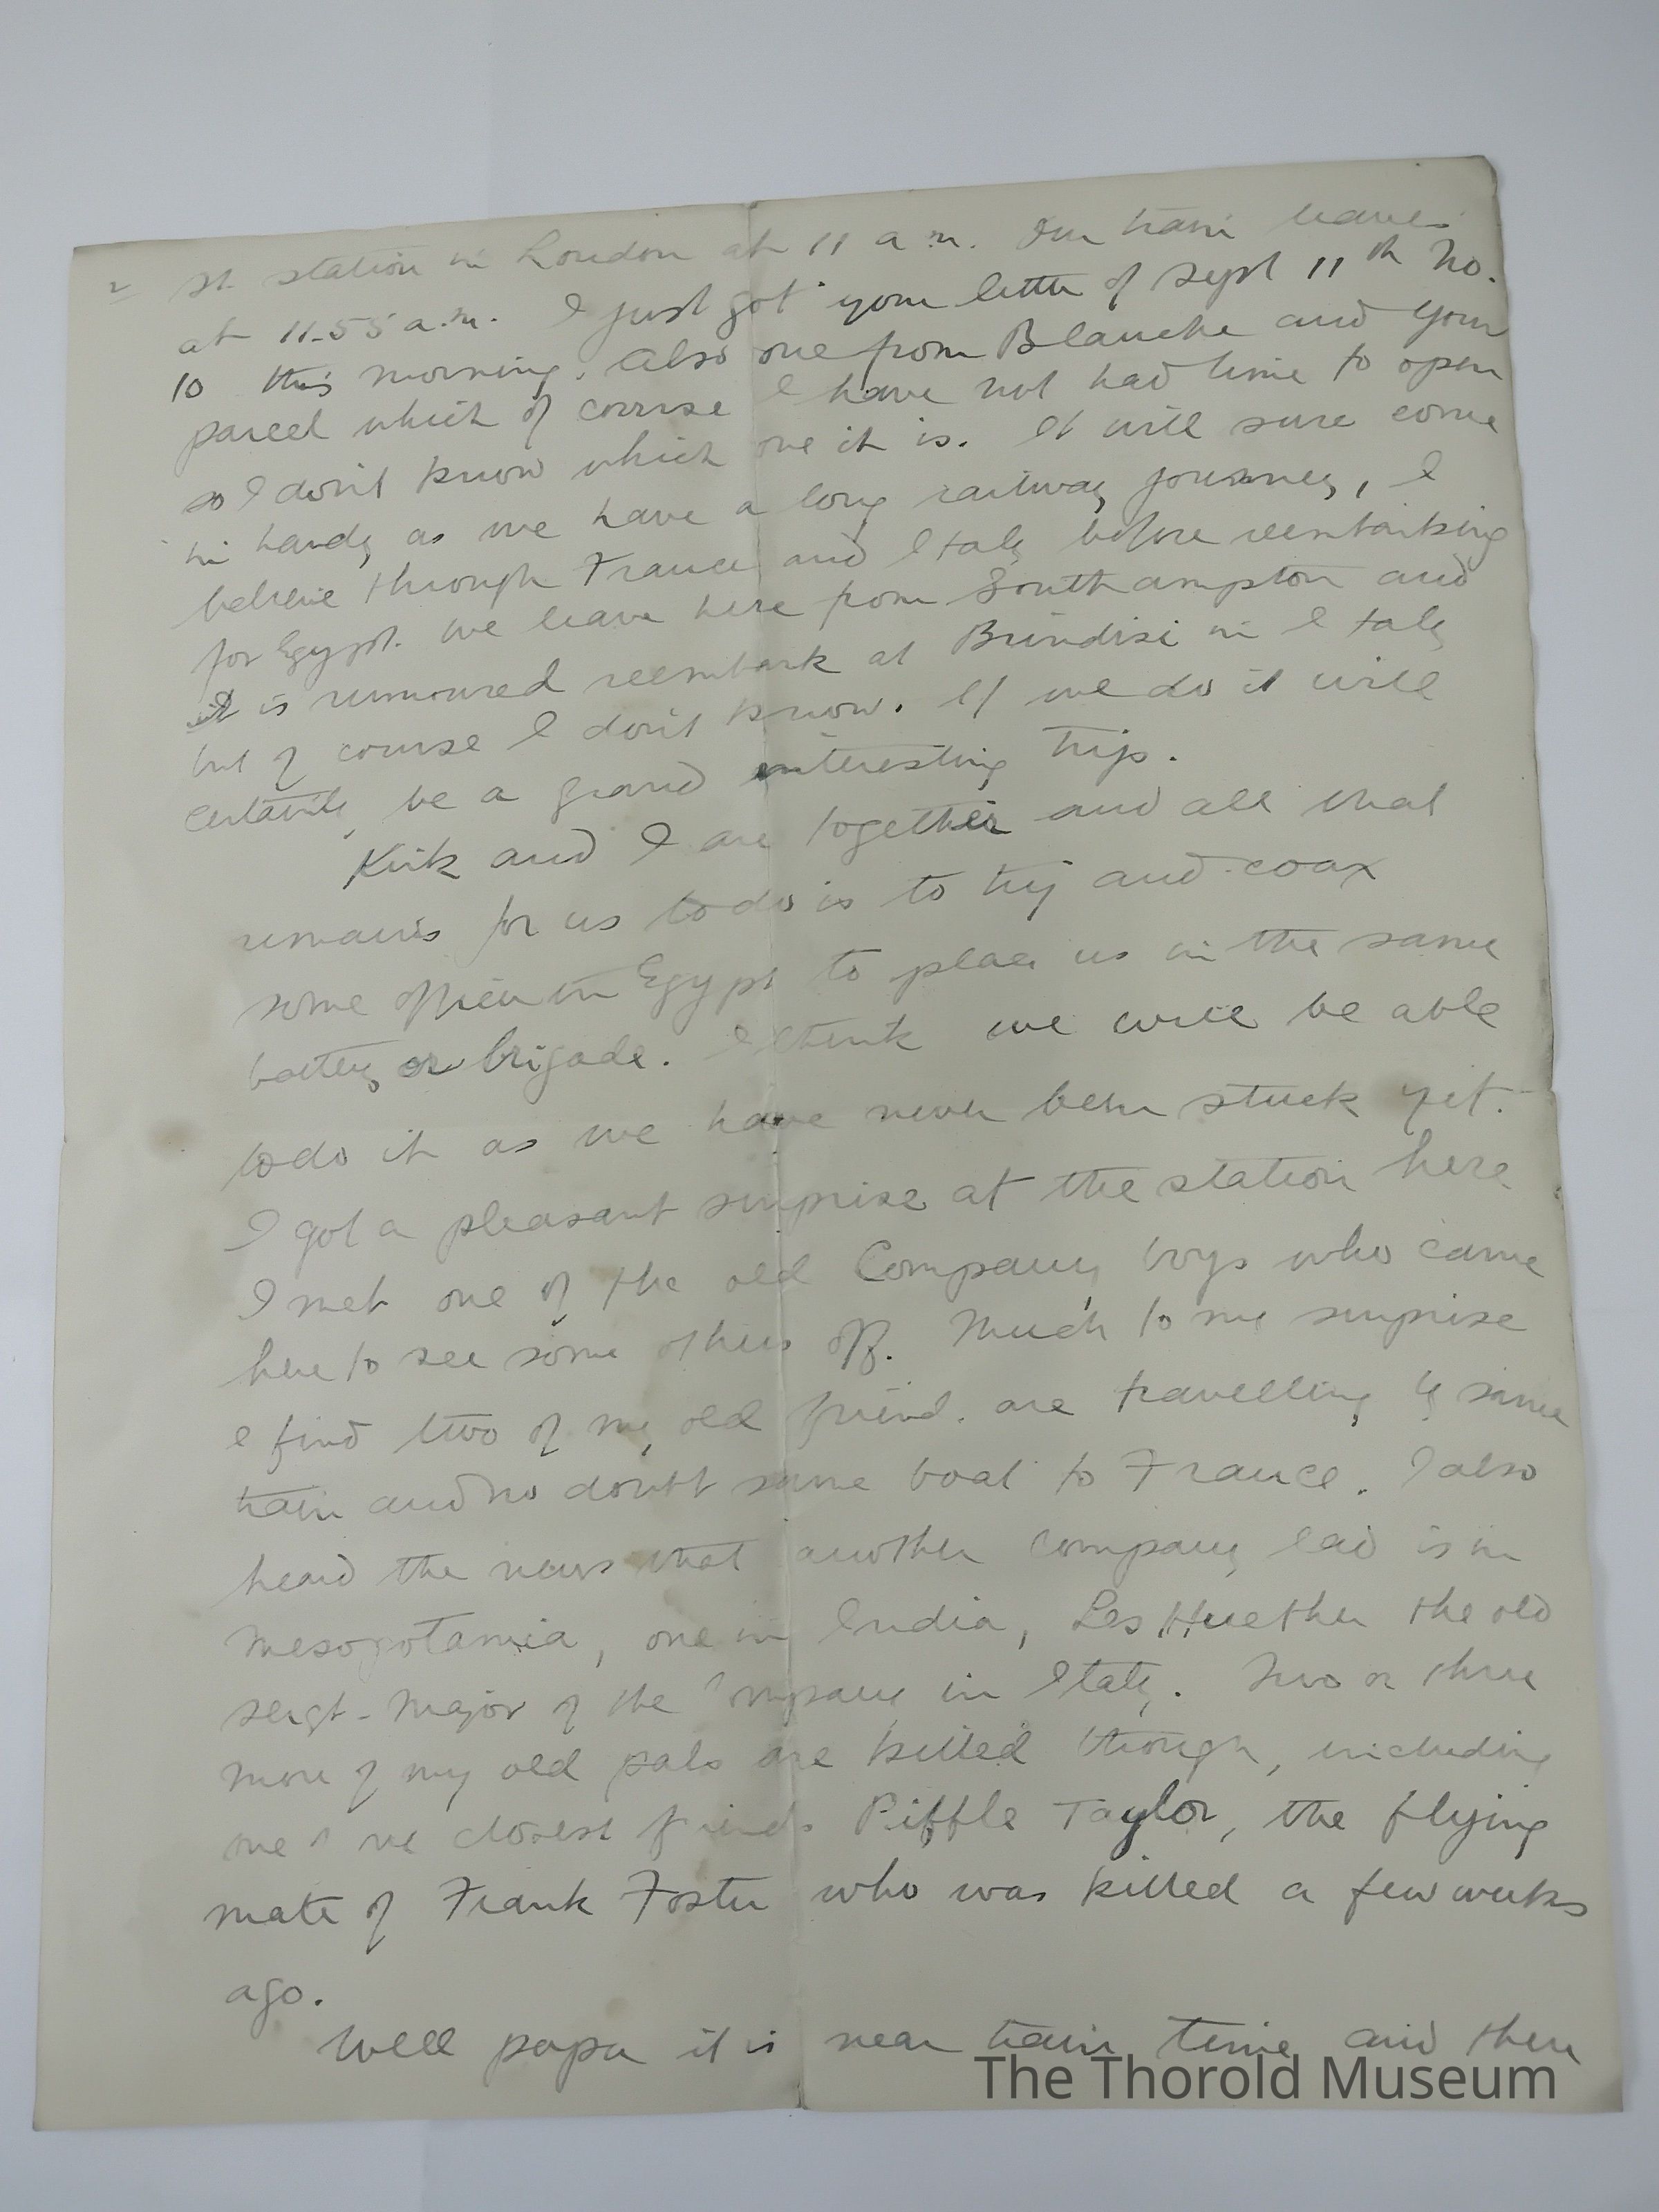 2
St. station in London at 11 a.m. Our train leaves
at 11.55 a.m. I just got your letter of Sept 11th No.
10 this morning. Also one from Blanche and your
parcel which of course I have not had time to open
so I don't know which one it is. It will sure come
in handy as we have a long railway journey, I
believe through France and Italy before reembarking
for Egypt. We leave here from Southampton and
it is rumoured reembark at Brindisi in Italy
but of course I don't know. If we do it will
certainly be a grand interesting trip.
Kirk and I are together and all that
remains for us to do is to try and coax
some officer in Egypt to place us in the same
battery or brigade. I think we will be able
to do it as we have never been stuck yet.
I got a pleasant surprise at the station here
I met one of the old Company boys who came
here to see some others off. Much to my surprise
I find two of my old friends are travelling by same
train and no doubt same boat to France. I also
heard the news that another company lad is in
Mesopotamia, one in India, Les Huether the old
Sergt-Major of the Company in Italy. Two or three
more of my old pals are killed though, including
one closest friends Piffle Taylor, the flying
mate of Frank Foster who was killed a few weeks
ago.
Well papa it is near train time and there
The Thorold Museum